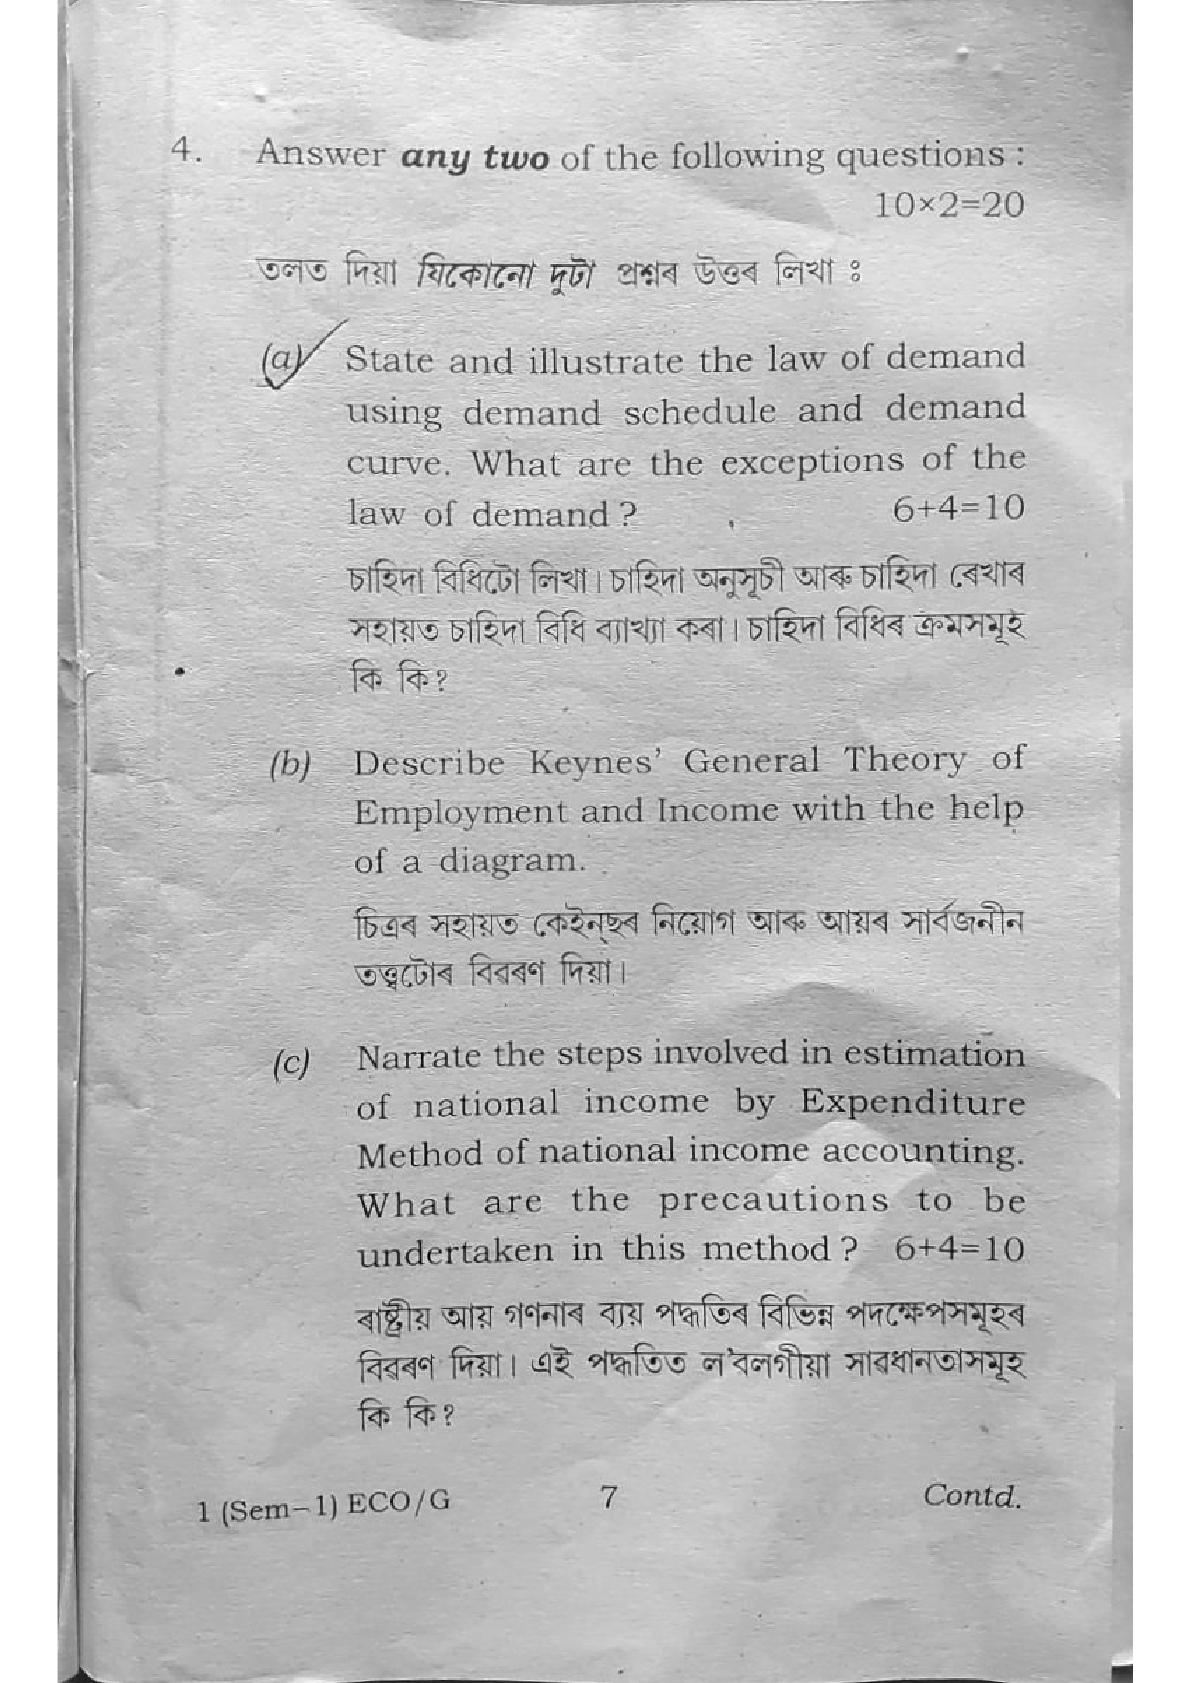 4. Answer any two of the following questions :
10×2=20
তলত দিয়া যিকোনো দুটা প্ৰশ্নৰ উত্তৰ লিখা ঃ
(a) State and illustrate the law of demand
using demand schedule and demand
curve. What are the exceptions of the
law of demand ? 6+4=10
চাহিদা বিধিটো লিখা। চাহিদা অনুসূচী আৰু চাহিদা ৰেখাৰ
সহায়ত চাহিদা বিধি ব্যাখ্যা কৰা। চাহিদা বিধিৰ ক্ৰমসমূহ
কি কি?
(b) Describe Keynes' General Theory of
Employment and Income with the help
of a diagram.
চিত্ৰৰ সহায়ত কেইন্‌ছৰ নিয়োগ আৰু আয়ৰ সাৰ্বজনীন
তত্ত্বটোৰ বিৱৰণ দিয়া।
(c) Narrate the steps involved in estimation
of national income by Expenditure
Method of national income accounting.
What are the precautions to be
undertaken in this method ? 6+4=10
ৰাষ্ট্ৰীয় আয় গণনাৰ ব্যয় পদ্ধতিৰ বিভিন্ন পদক্ষেপসমূহৰ
বিৱৰণ দিয়া। এই পদ্ধতিত ল'বলগীয়া সাৱধানতাসমূহ
কি কি?
1 (Sem–1) ECO/G 7 Contd.